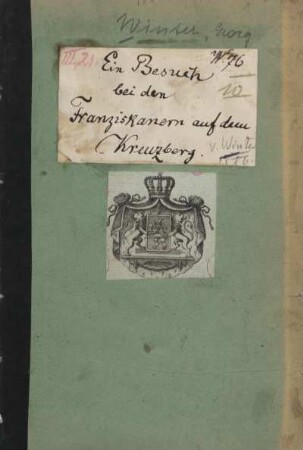 Winter, Georg
III, 21
W. 76
Ein Besuch
10
bei den
Franziskanern auf dem
Kreuzberg.
v. Winter